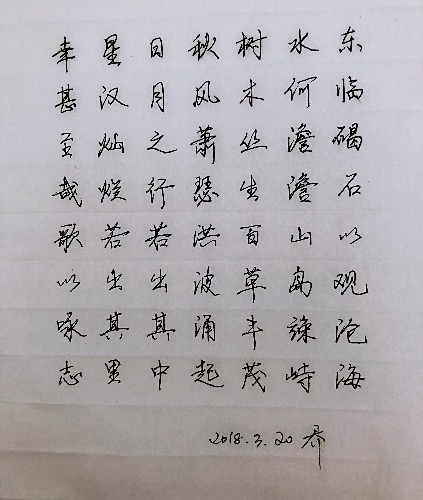 东临碣石以观沧海
水何澹澹山岛竦峙
树木丛生百草丰茂
秋风萧瑟洪波涌起
日月之行若出其中
星汉灿烂若出其里
幸甚至哉歌以咏志
2018.3.20